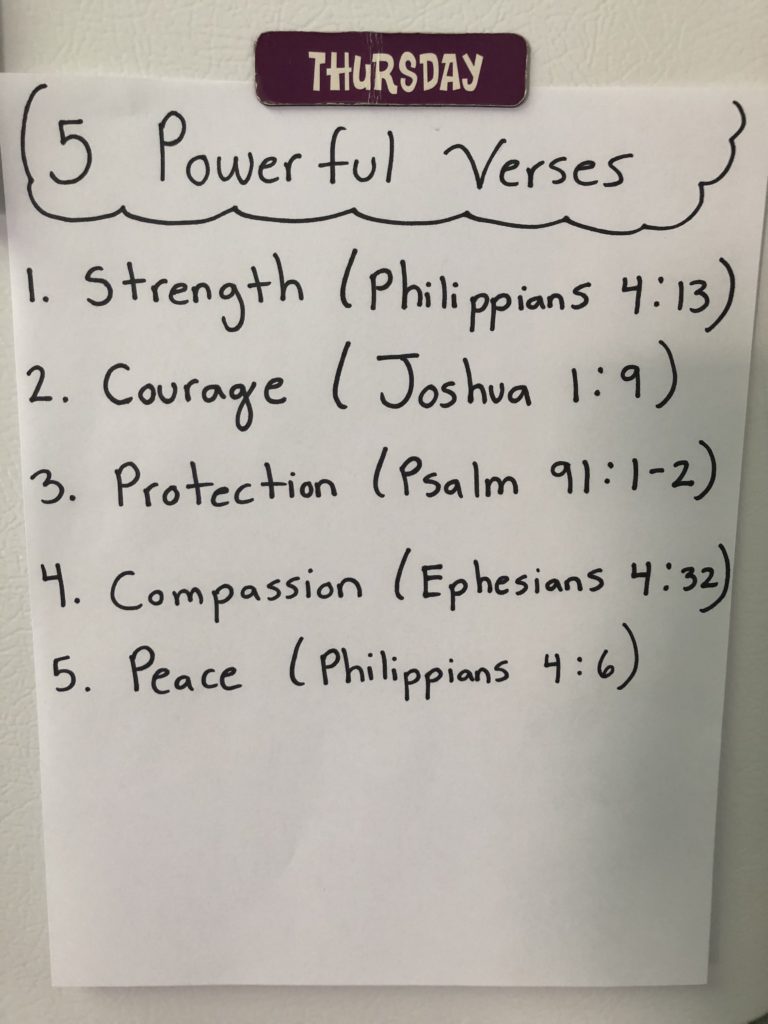 THURSDAY
5 Powerful Verses
1. Strength (Philippians 4:13)
2. Courage (Joshua 1:9)
3. Protection (Psalm 91:1-2)
4. Compassion (Ephesians 4:32)
5. Peace (Philippians 4:6)